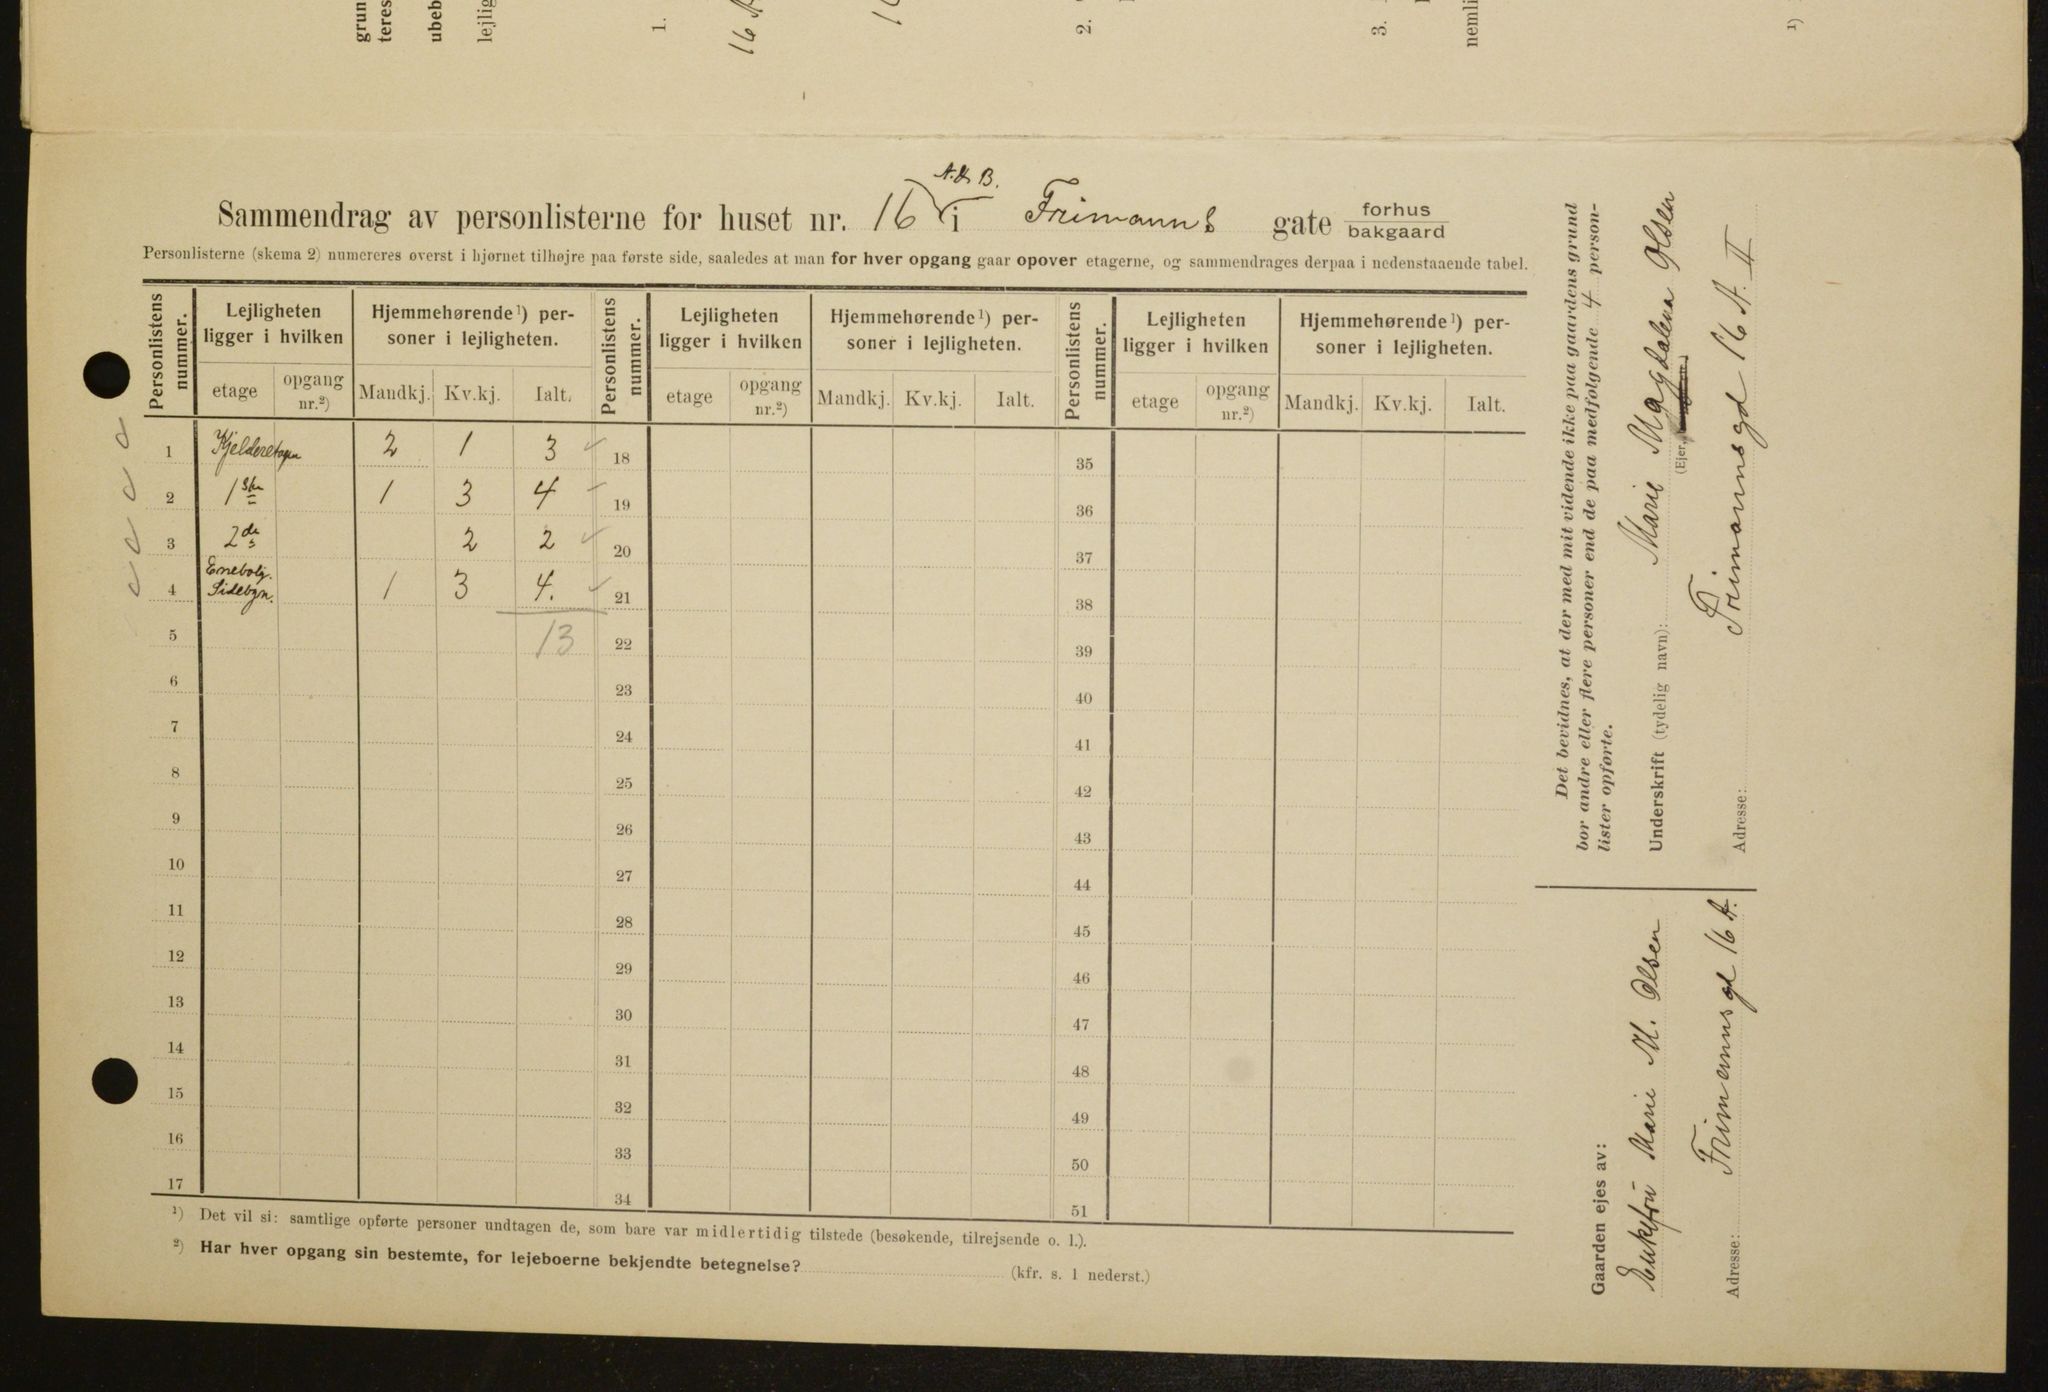 grun
teres
ubeb
lejlig
1.
16 A
2.
3.
nemli
¹)
A. & B.
Sammendrag av personlisterne for huset nr. 16 i Frimanns gate forhus
bakgaard
Personlisterne (skema 2) numereres øverst i hjørnet tilhøjre paa første side, saaledes at man for hver opgang gaar opover etagerne, og sammendrages derpaa i nedenstaaende tabel.
Personlistens nummer. Lejligheten ligger i hvilken Hjemmehørende ¹) personer i lejligheten. Personlistens nummer. Lejligheten ligger i hvilken Hjemmehørende ¹) personer i lejligheten. Personlistens nummer. Lejligheten ligger i hvilken Hjemmehørende ¹) personer i lejligheten.
etage opgang nr.²) Mandkj. Kv.kj. Ialt. etage opgang nr.²) Mandkj. Kv.kj. Ialt. etage opgang nr.²) Mandkj. Kv.kj. Ialt.
1 Kjelderetagen 2 1 3 18 35
2 1ste 1 3 4 19 36
3 2de 2 2 20 37
4 Enebolg. Sidebgn. 1 3 4. 21 38
5 13 22 39
6 23 40
7 24 41
8 25 42
9 26 43
10 27 44
11 28 45
12 29 46
13 30 47
14 31 48
15 32 49
16 33 50
17 34 51
¹) Det vil si: samtlige opførte personer undtagen de, som bare var midlertidig tilstede (besøkende, tilrejsende o. l.).
²) Har hver opgang sin bestemte, for lejeboerne bekjendte betegnelse? (kfr. s. 1 nederst.)
Det bevidnes, at der med mit vidende ikke paa gaardens grund
bor andre eller flere personer end de paa medfølgende 4 person-
lister opførte.
Underskrift (tydelig navn): Marie Magdalena Olsen
(Ejer,
Adresse: Frimannsgd 16 A. II
Gaarden ejes av:
Enkefru Marie M. Olsen
Adresse: Frimannsgd 16 A.